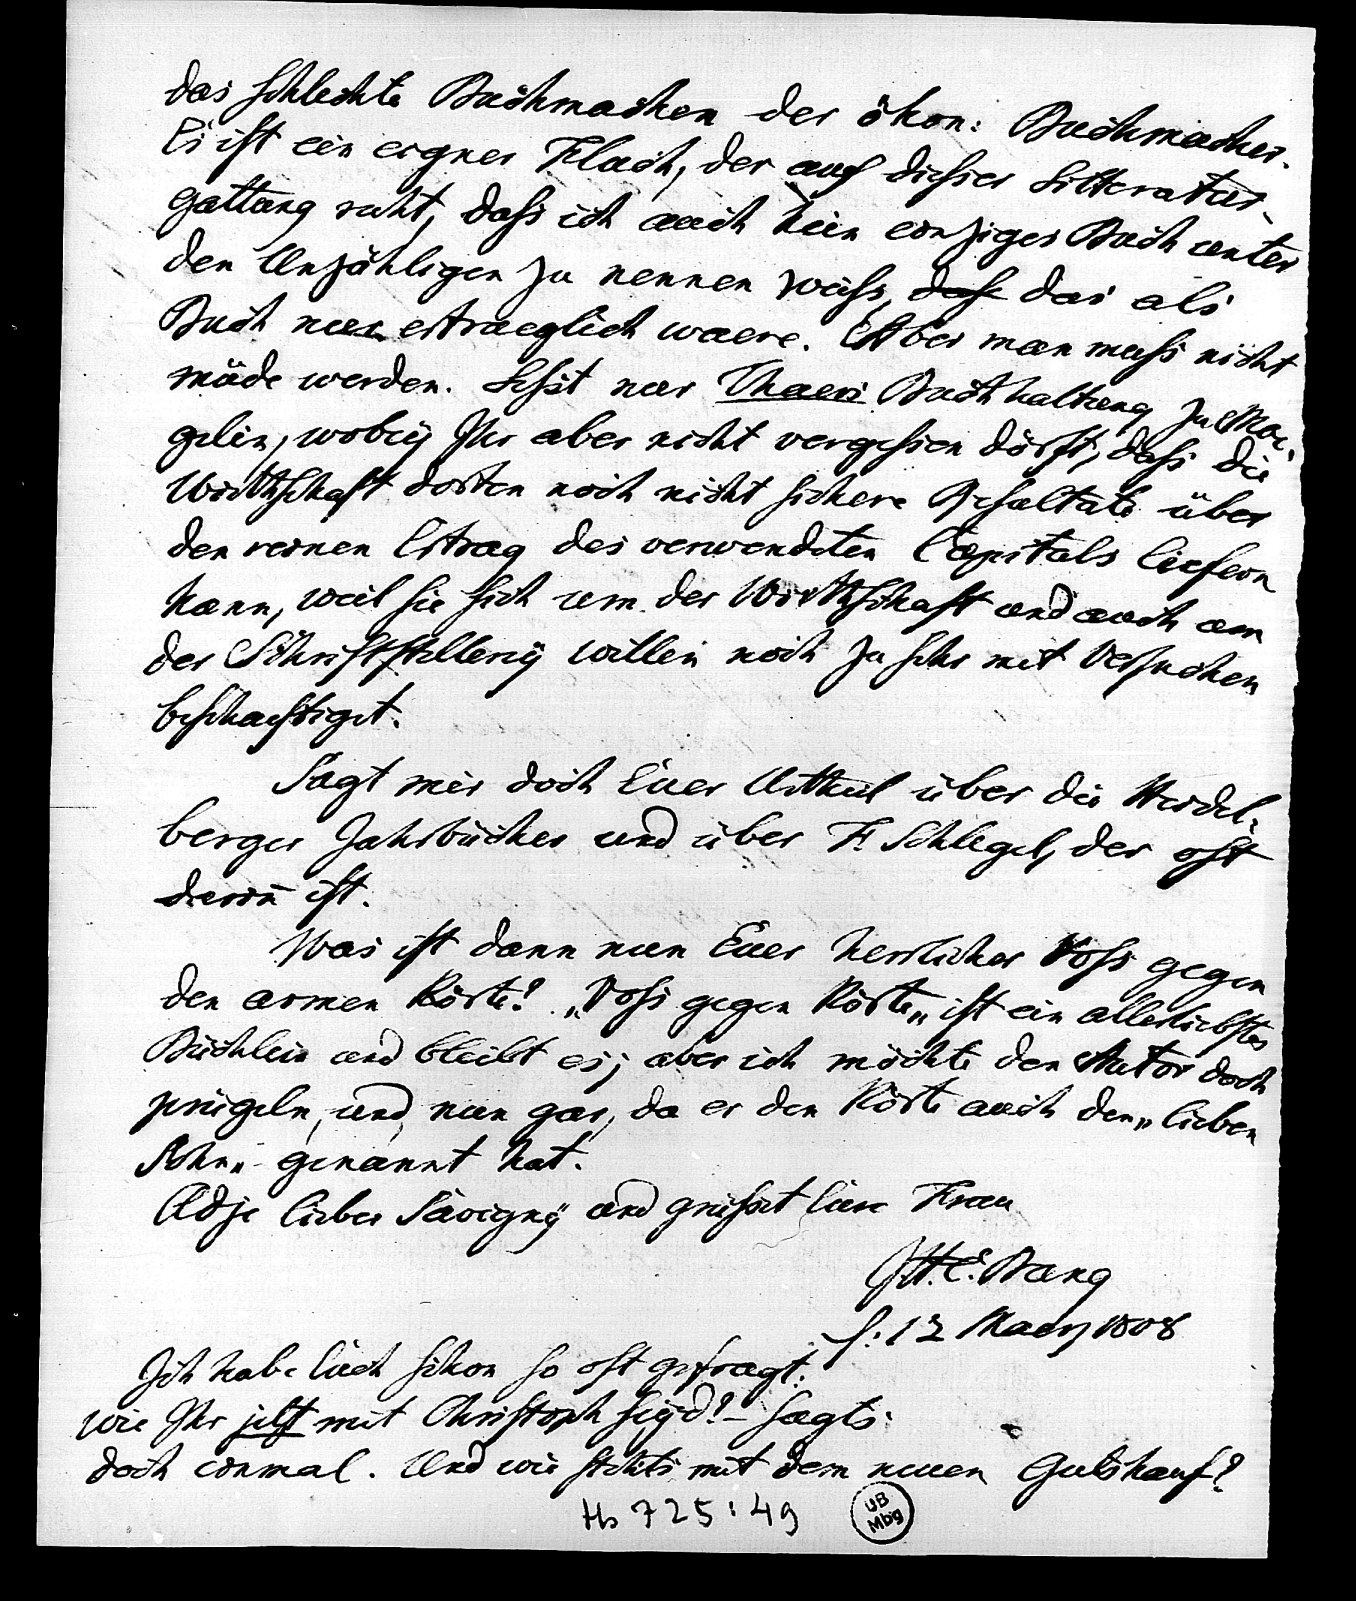 das schlechte Buchmachen der ökon: Buchmacher.
Es ist ein eigner Fluch, der auf dieser Litteratur-
gattung ruht, dass ich auch kein einziges Buch unter
den Unzähligen zu nennen weiss, dass das als
Buch nur ertraeglich waere. Aber man muss nicht
müde werden. Lesst nur Thaers Buchhaltung zu Moe-
gelin, wobey Ihr aber nicht vergessen dörft, dass die
Wirthschaft dorten noch nicht sichere Resultate über
den reinen Ertrag des verwendeten Capitals liefern
kann, weil sie sich um der Wirthschaft und auch um
der Schriftstellerey willen noch zu sehr mit Versuchen
beschaeftiget.
Sagt mir doch Euer Urtheil über die Heidel-
berger Jahrbücher und über F. Schlegel, der oft
derin̄ ist.
Was ist dann nun Euer herrlicher Voss gegen
den armen Körte? „Voss gegen Körte„ ist ein allerliebstes
Büchlein und bleibt es; aber ich möchte den Autor doch
prügeln, und nun gar, da er den Körte auch den „lieben
Sohn„ genannt hat.
Adje lieber Savigny und grüsset Eure Frau
J.H.C. Bang
f. 12 Maerz 1808
Ich habe Euch schon so oft gefragt:
wie Ihr jetzt mit Christoph seyd? - Sagts
doch einmal. Und wie stehts mit dem neuen Gutskauf?
Hs 725:49
UB
Mbg